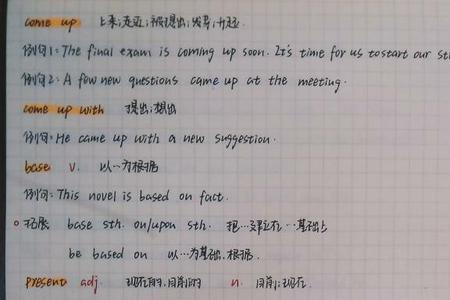 come up 上来;走近;被提出;发芽;升起.
例句1: The final exam is coming up soon. It's time for us to start our
例句2: A few new questions came up at the meeting.
come up with 提出;想出
例句: He came up with a new suggestion.
base v. 以…为根据
例句: This novel is based on fact.
拓展 base sth. on/upon sth. 把…建立在…基础上
be based on 以…为基础,根据.
present adj. 现在的,目前的 n. 目前;现在.